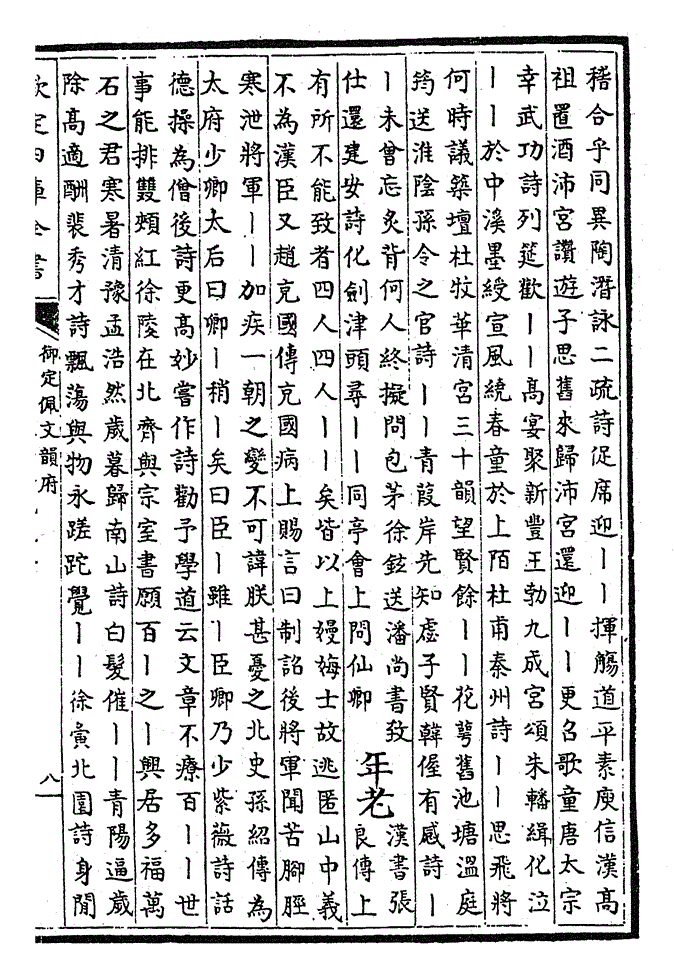 稽合乎同異陶潛詠二疏詩促席迎丨丨揮觴道平素庾信漢高
祖置酒沛宮讚遊子思舊來歸沛宮還迎丨丨更召歌童唐太宗
幸武功詩列筵歡丨丨高宴聚新豐王勃九成宮頌朱轓緝化泣
丨丨於中溪墨綬宣風繞春童於上陌杜甫秦州詩丨丨思飛將
何時議築壇杜牧華清宮三十韻望賢餘丨丨花萼舊池塘溫庭
筠送淮陰孫令之官詩丨丨青葭岸先知處子賢韓偓有感詩丨
丨未曾忘炙背何人終擬問包茅徐鉉送潘尚書致
仕還建安詩化劍津頭尋丨丨同亭會上問仙卿
年老
漢書張
良傳上
有所不能致者四人四人丨丨矣皆以上嫚娒士故逃匿山中義
不為漢臣又趙充國傳充國病上賜言曰制詔後將軍聞苦腳脛
寒泄將軍丨丨加疾一朝之變不可諱朕甚憂之北史孫紹傳為
太府少卿太后曰卿丨稍丨矣曰臣丨雖丨臣卿乃少紫薇詩話
德操為僧後詩更高妙嘗作詩勸予學道云文章不療百丨丨世
事能排雙頰紅徐陵在北齊與宗室書願百丨之丨興居多福萬
石之君寒暑清豫孟浩然歲暮歸南山詩白髮催丨丨青陽逼歲
除高適酬裴秀才詩飄蕩與物永蹉跎覺丨丨徐夤北園詩身閒
欽定四庫全書
御定佩文韻府
八